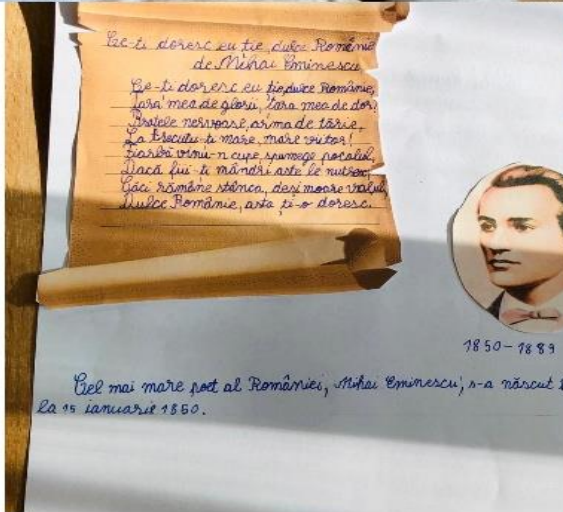 Ce-ți doresc eu ție, dulce Românie
de Mihai Eminescu
Ce-ți doresc eu ție, dulce Românie,
Țara mea de glorii, țara mea de dor,
Brațele nervoase, arma de tărie,
La trecutu-ți mare, mare viitor!
Fiarbă vinu-n cupe, spumege pocalul,
Dacă fiii-ți mândri aste le nutresc,
Căci rămâne stânca, deși moare valul,
Dulce Românie, asta ți-o doresc.
1850-1889
Cel mai mare poet al României, Mihai Eminescu, s-a născut
la 15 ianuarie 1850.